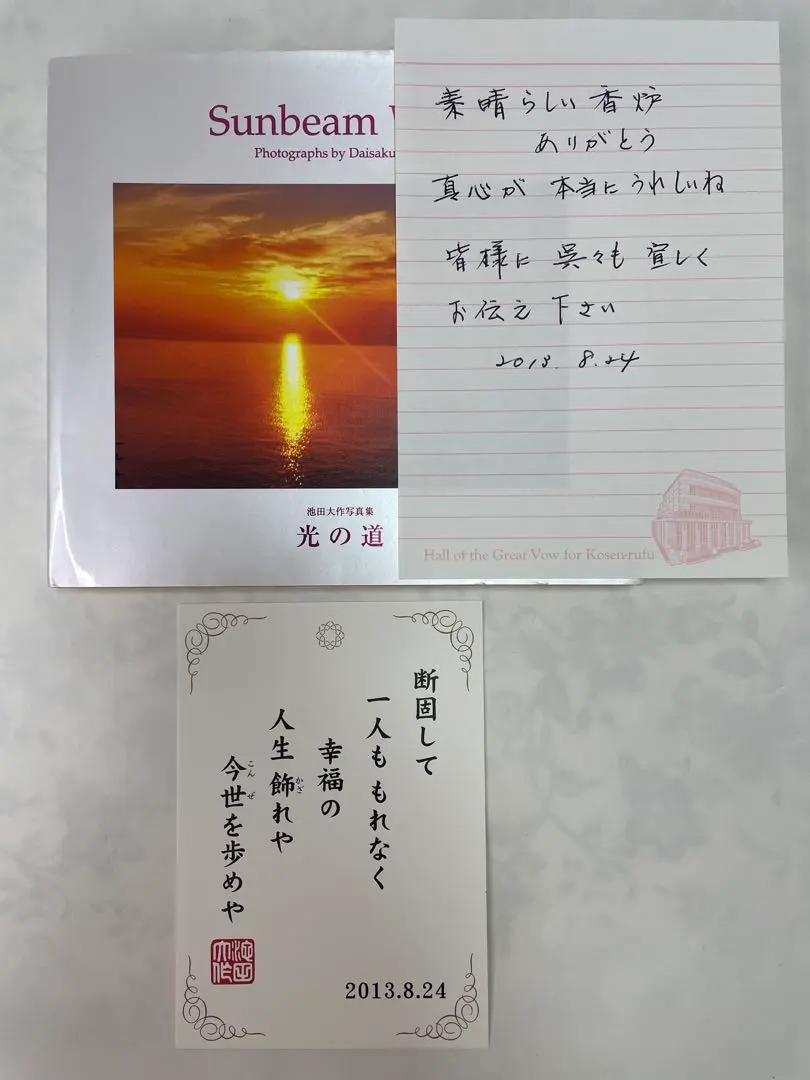 Sunbeam
Photographs by Daisaku
池田大作写真集
光の道
素晴らしい香炉
ありがとう
真心が 本当にうれしいね
皆様に 呉々も 宜しく
お伝え下さい
2013. 8.24
Hall of the Great Vow for Kosen-rufu
断固して
一人も もれなく
幸福の
人生 飾れや
かざ
今世を歩めや
こんぜ
池田大作
2013.8.24